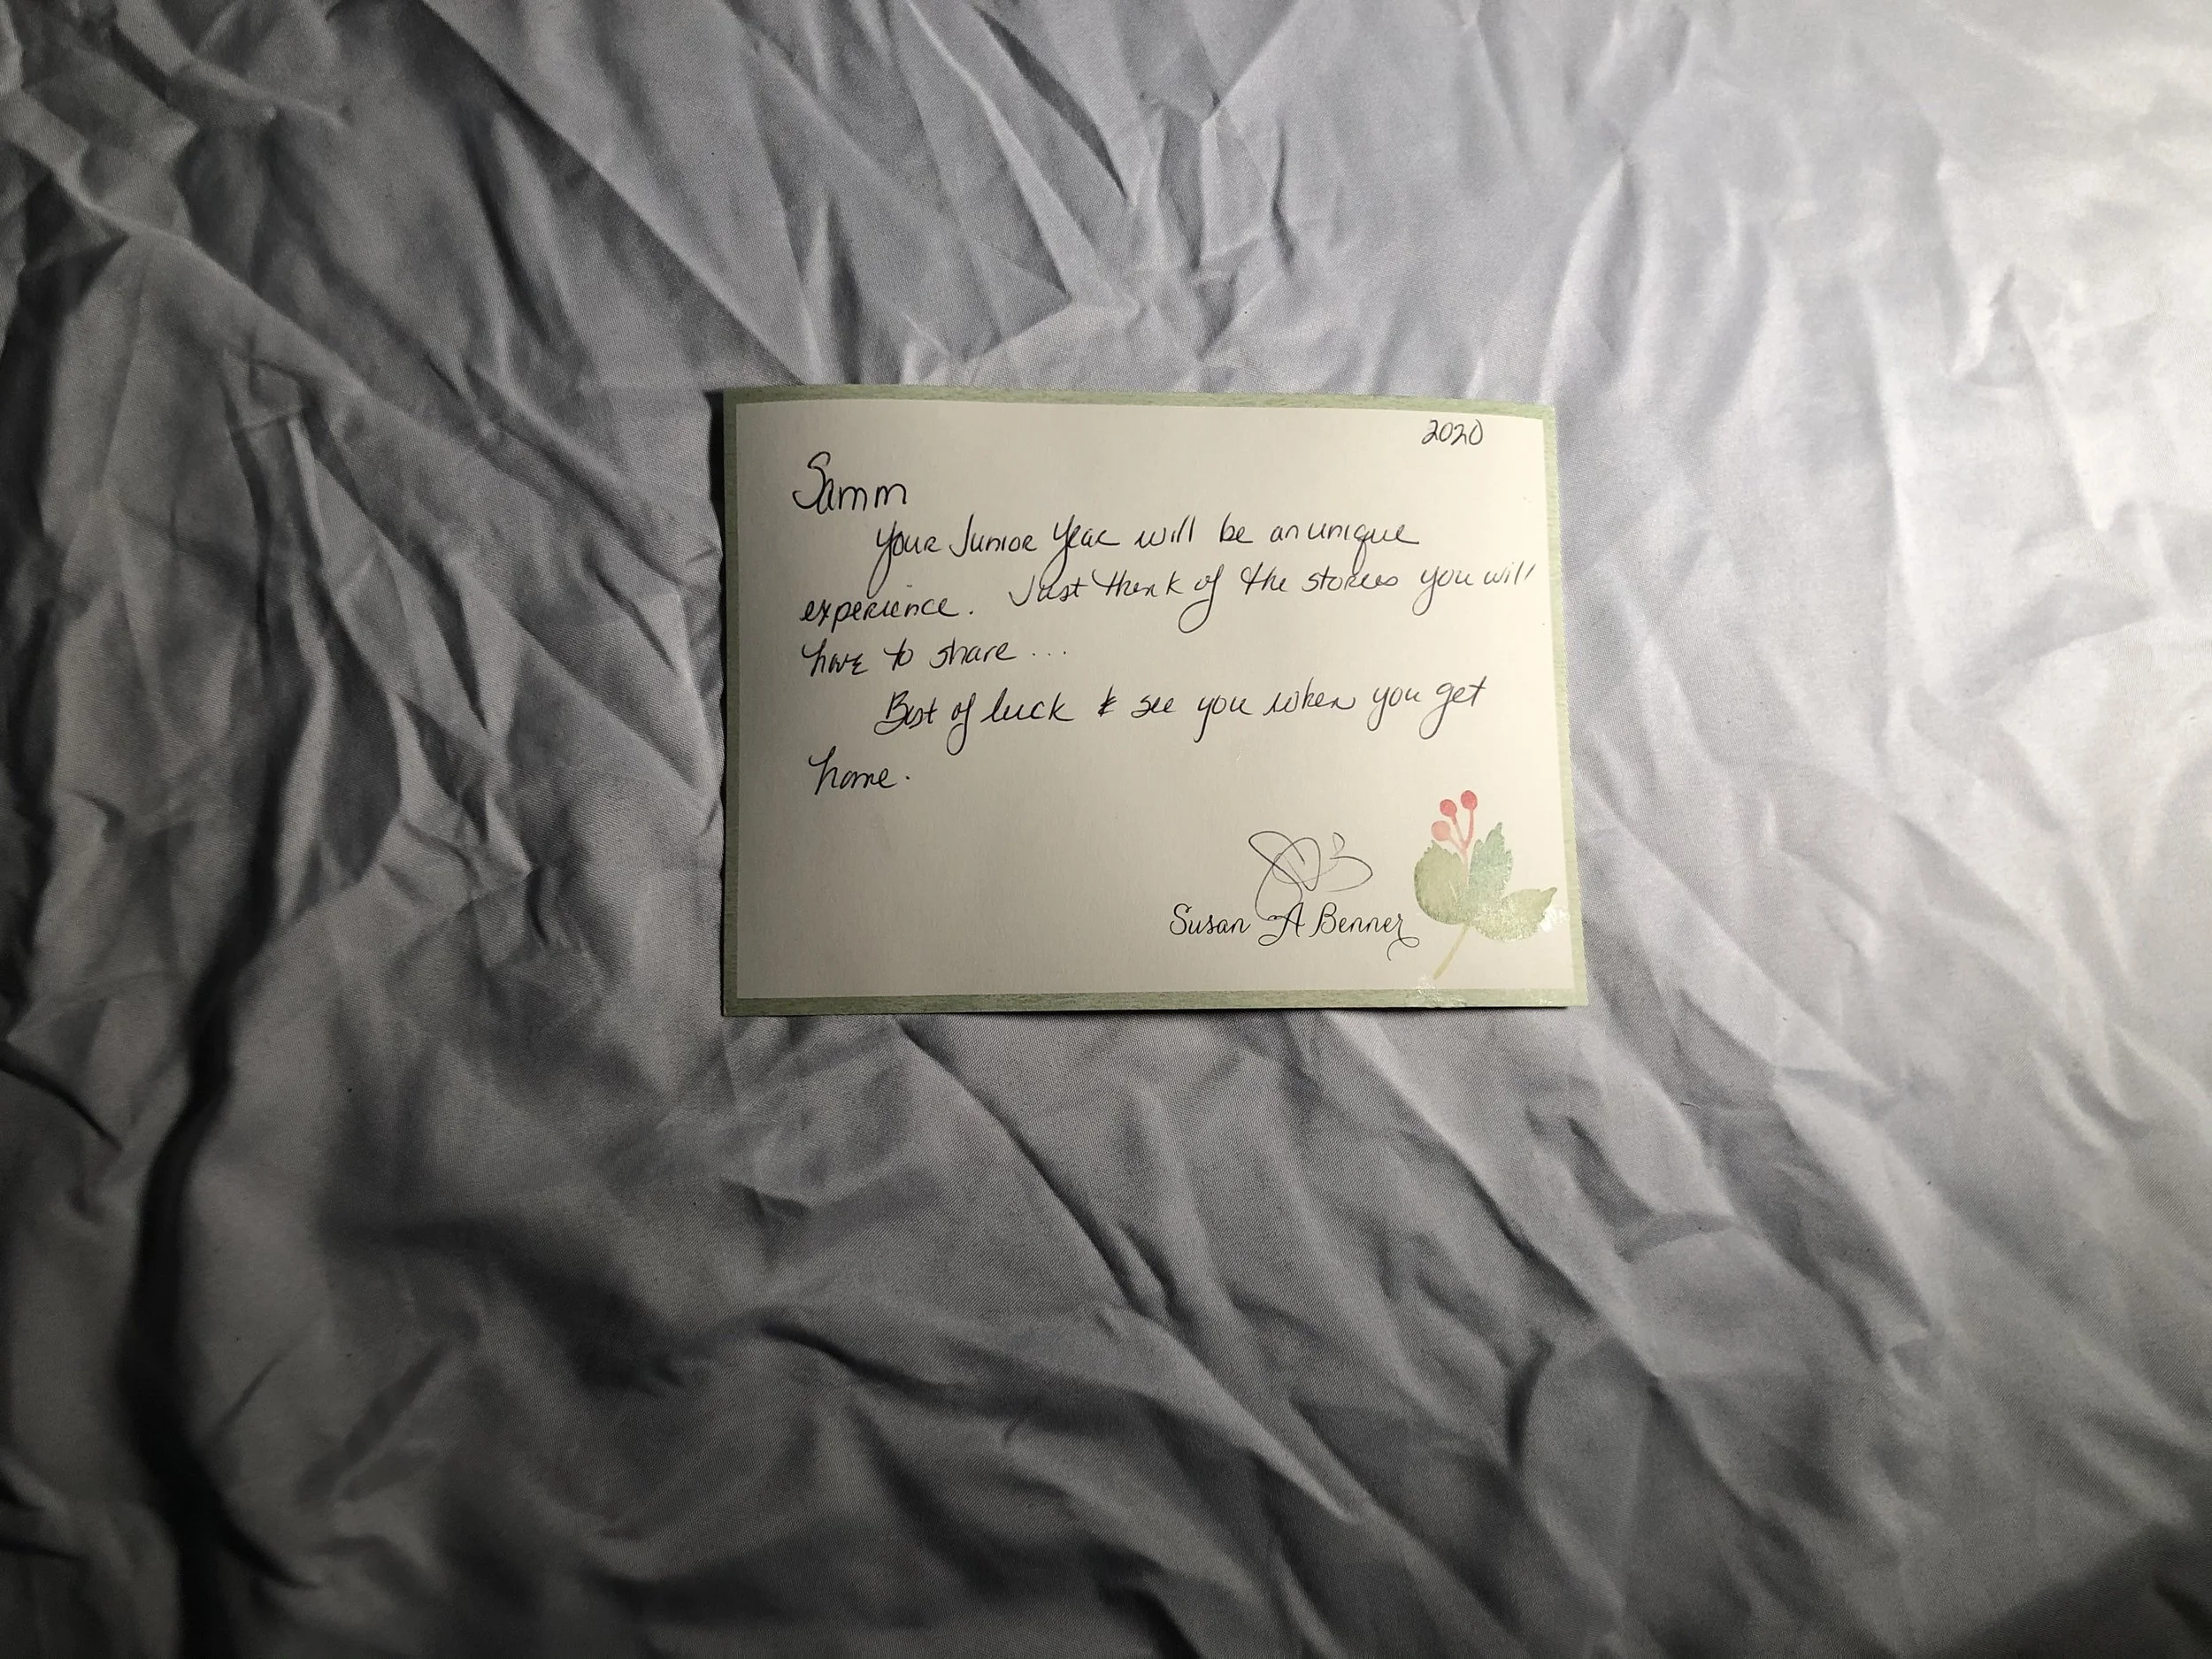 2020
Samm
Your Junior Year will be an unique
experience. Just think of the stories you will
have to share...
Best of luck & see you when you get
home.
Susan A Benner